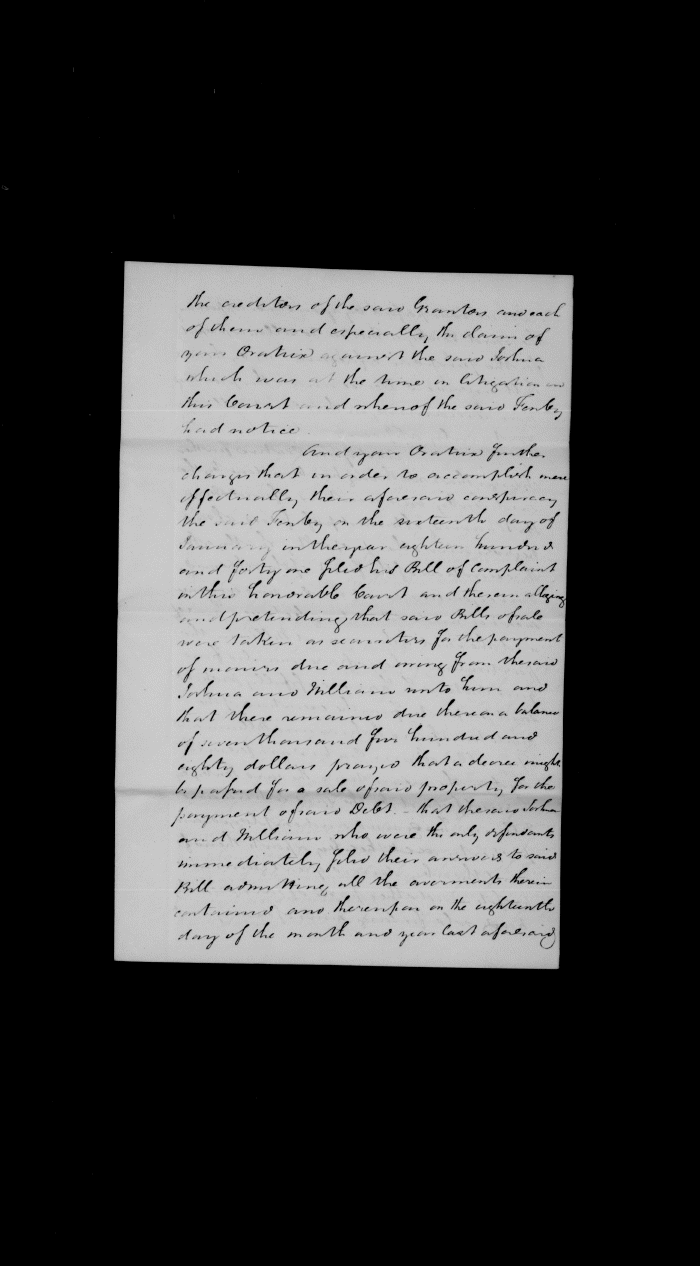 the creditors of the said Grantors and each
of them and especially the claim of
your Oratrix against the said Joshua
which was at the time in litigation in
this Court and whereof the said Fenby
had notice
And your Oratrix further
charges that in order to accomplish more
effectually their aforesaid conspiracy
the said Fenby on the sixteenth day of
January in the year eighteen hundred
and forty one filed his Bill of Complaint
in this honorable Court and therein alleging
and pretending that said Bills of sale
were taken as securities for the payment
of monies due and owing from the said
Joshua and William unto him and
that there remained due thereon a balance
of seven thousand five hundred and
eighty dollars prayed that a decree might
be passed for a sale of said property for the
payment of said Debt. - that the said Joshua
and William who were the only defendants
immediately filed their answers to said
Bill admitting all the averments therein
contained and thereupon on the eighteenth
day of the month and year last aforesaid